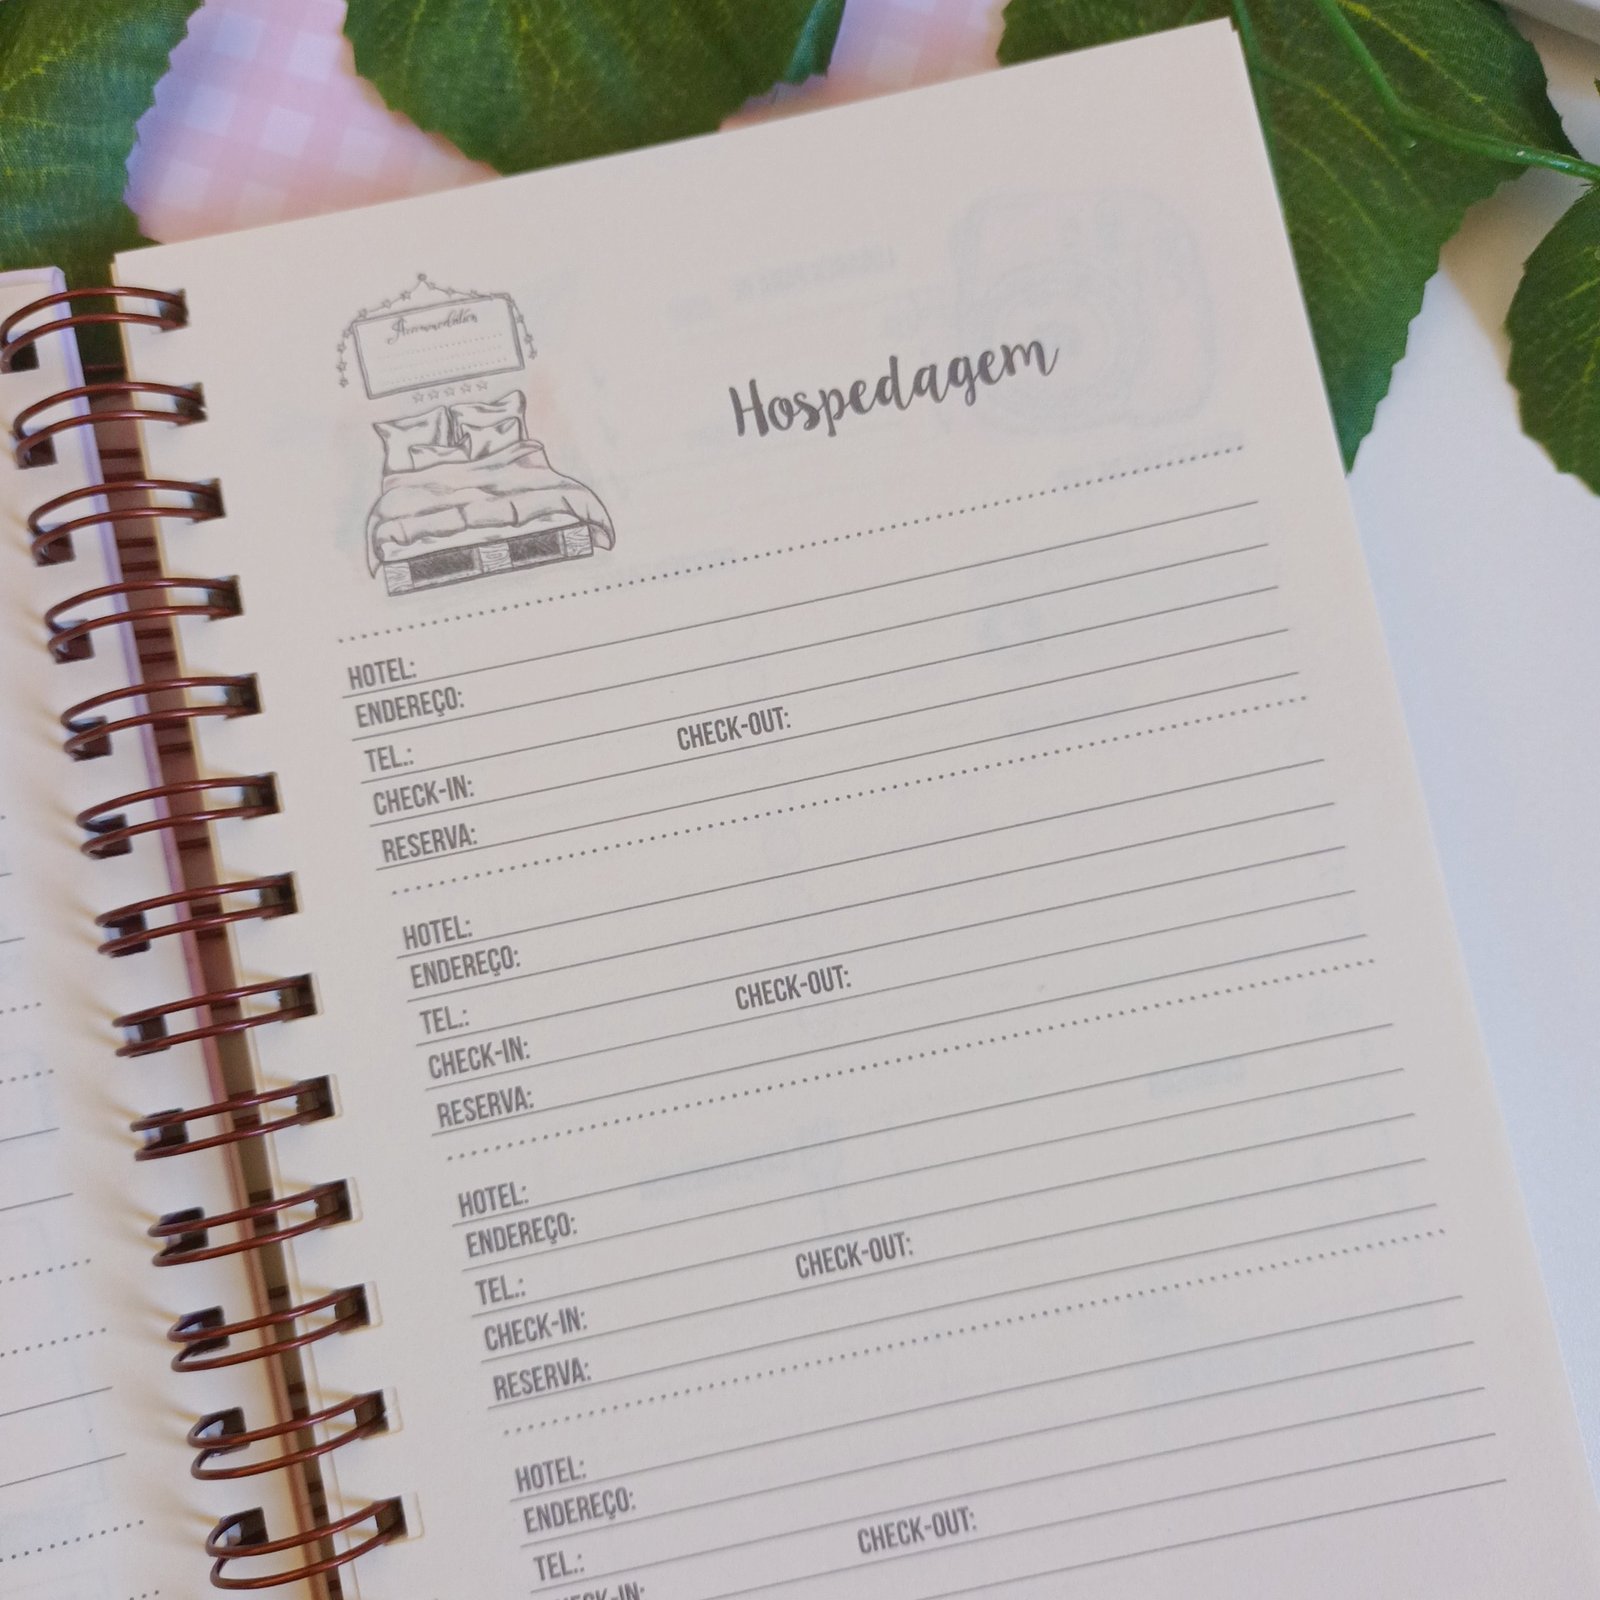 Accommodation
Hospedagem
HOTEL:
ENDEREÇO:
TEL.:
CHECK-IN: CHECK-OUT:
RESERVA:
HOTEL:
ENDEREÇO:
TEL.:
CHECK-IN: CHECK-OUT:
RESERVA:
HOTEL:
ENDEREÇO:
TEL.:
CHECK-IN: CHECK-OUT:
RESERVA:
HOTEL:
ENDEREÇO:
TEL.:
CHECK-IN: CHECK-OUT: